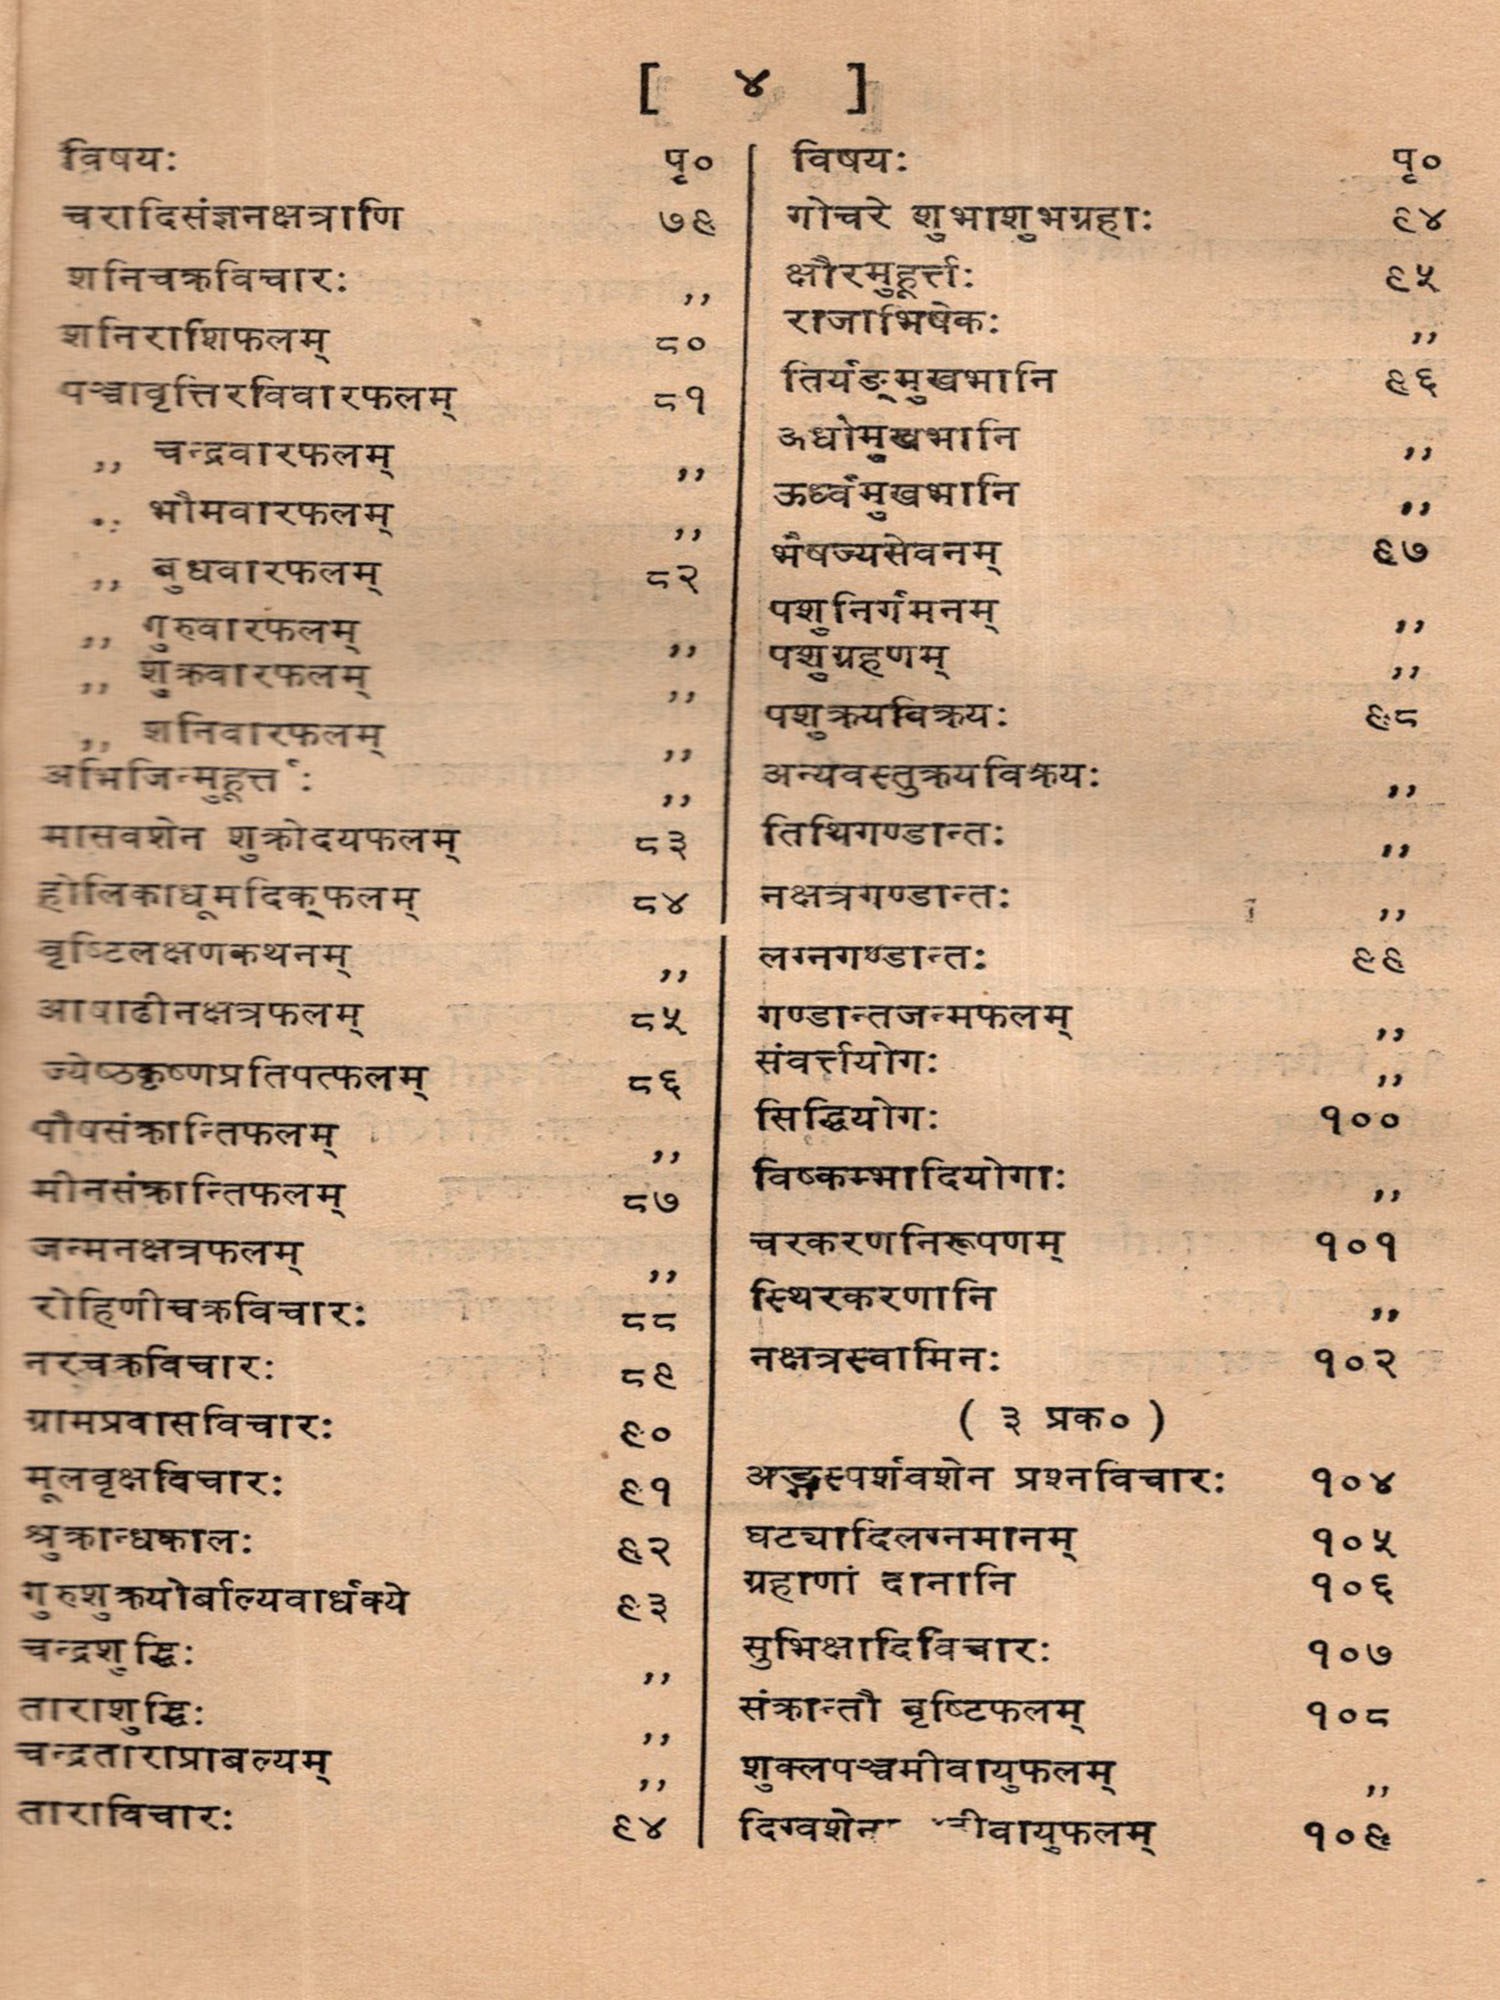 [ ४ ]
विषयः पृ०
चरादिसंज्ञनक्षत्राणि ७९
शनिचक्रविचारः ,,
शनिराशिफलम् ८०
पञ्चावृत्तिरविवारफलम् ८१
,, चन्द्रवारफलम् ,,
,, भौमवारफलम् ,,
,, बुधवारफलम् ८२
,, गुरुवारफलम् ,,
,, शुक्रवारफलम् ,,
,, शनिवारफलम् ,,
अभिजिन्मुहूर्त्तः ,,
मासवशेन शुक्रोदयफलम् ८३
होलिकाधूमदिक्फलम् ८४
वृष्टिलक्षणकथनम् ,,
आषाढीनक्षत्रफलम् ८५
ज्येष्ठकृष्णप्रतिपत्फलम् ८६
पौषसंक्रान्तिफलम् ,,
मीनसंक्रान्तिफलम् ८७
जन्मनक्षत्रफलम् ,,
रोहिणीचक्रविचारः ८८
नरचक्रविचारः ८९
ग्रामप्रवासविचारः ९०
मूलवृक्षविचारः ९१
श्रुक्रान्धकालः ९२
गुरुशुक्रयोर्बाल्यवार्धक्ये ९३
चन्द्रशुद्धिः ,,
ताराशुद्धिः ,,
चन्द्रताराप्राबल्यम् ,,
ताराविचारः ९४
विषयः पृ०
गोचरे शुभाशुभग्रहाः ९४
क्षौरमुहूर्त्तः ९५
राजाभिषेकः ,,
तिर्यङ्मुखभानि ९६
अधोमुखभानि ,,
ऊर्ध्वमुखभानि ,,
भैषज्यसेवनम् ९७
पशुनिर्गमनम् ,,
पशुग्रहणम् ,,
पशुक्रयविक्रयः ९८
अन्यवस्तुक्रयविक्रयः ,,
तिथिगण्डान्तः ,,
नक्षत्रगण्डान्तः ,,
लग्नगण्डान्तः ९९
गण्डान्तजन्मफलम् ,,
संवर्त्तयोगः ,,
सिद्धियोगः १००
विष्कम्भादियोगाः ,,
चरकरणनिरूपणम् १०१
स्थिरकरणानि ,,
नक्षत्रस्वामिनः १०२
( ३ प्रक० )
अङ्गस्पर्शवशेन प्रश्नविचारः १०४
घट्यादिलग्नमानम् १०५
ग्रहाणां दानानि १०६
सुभिक्षादिविचारः १०७
संक्रान्तौ वृष्टिफलम् १०८
शुक्लपञ्चमीवायुफलम् ,,
दिग्वशेन १०९